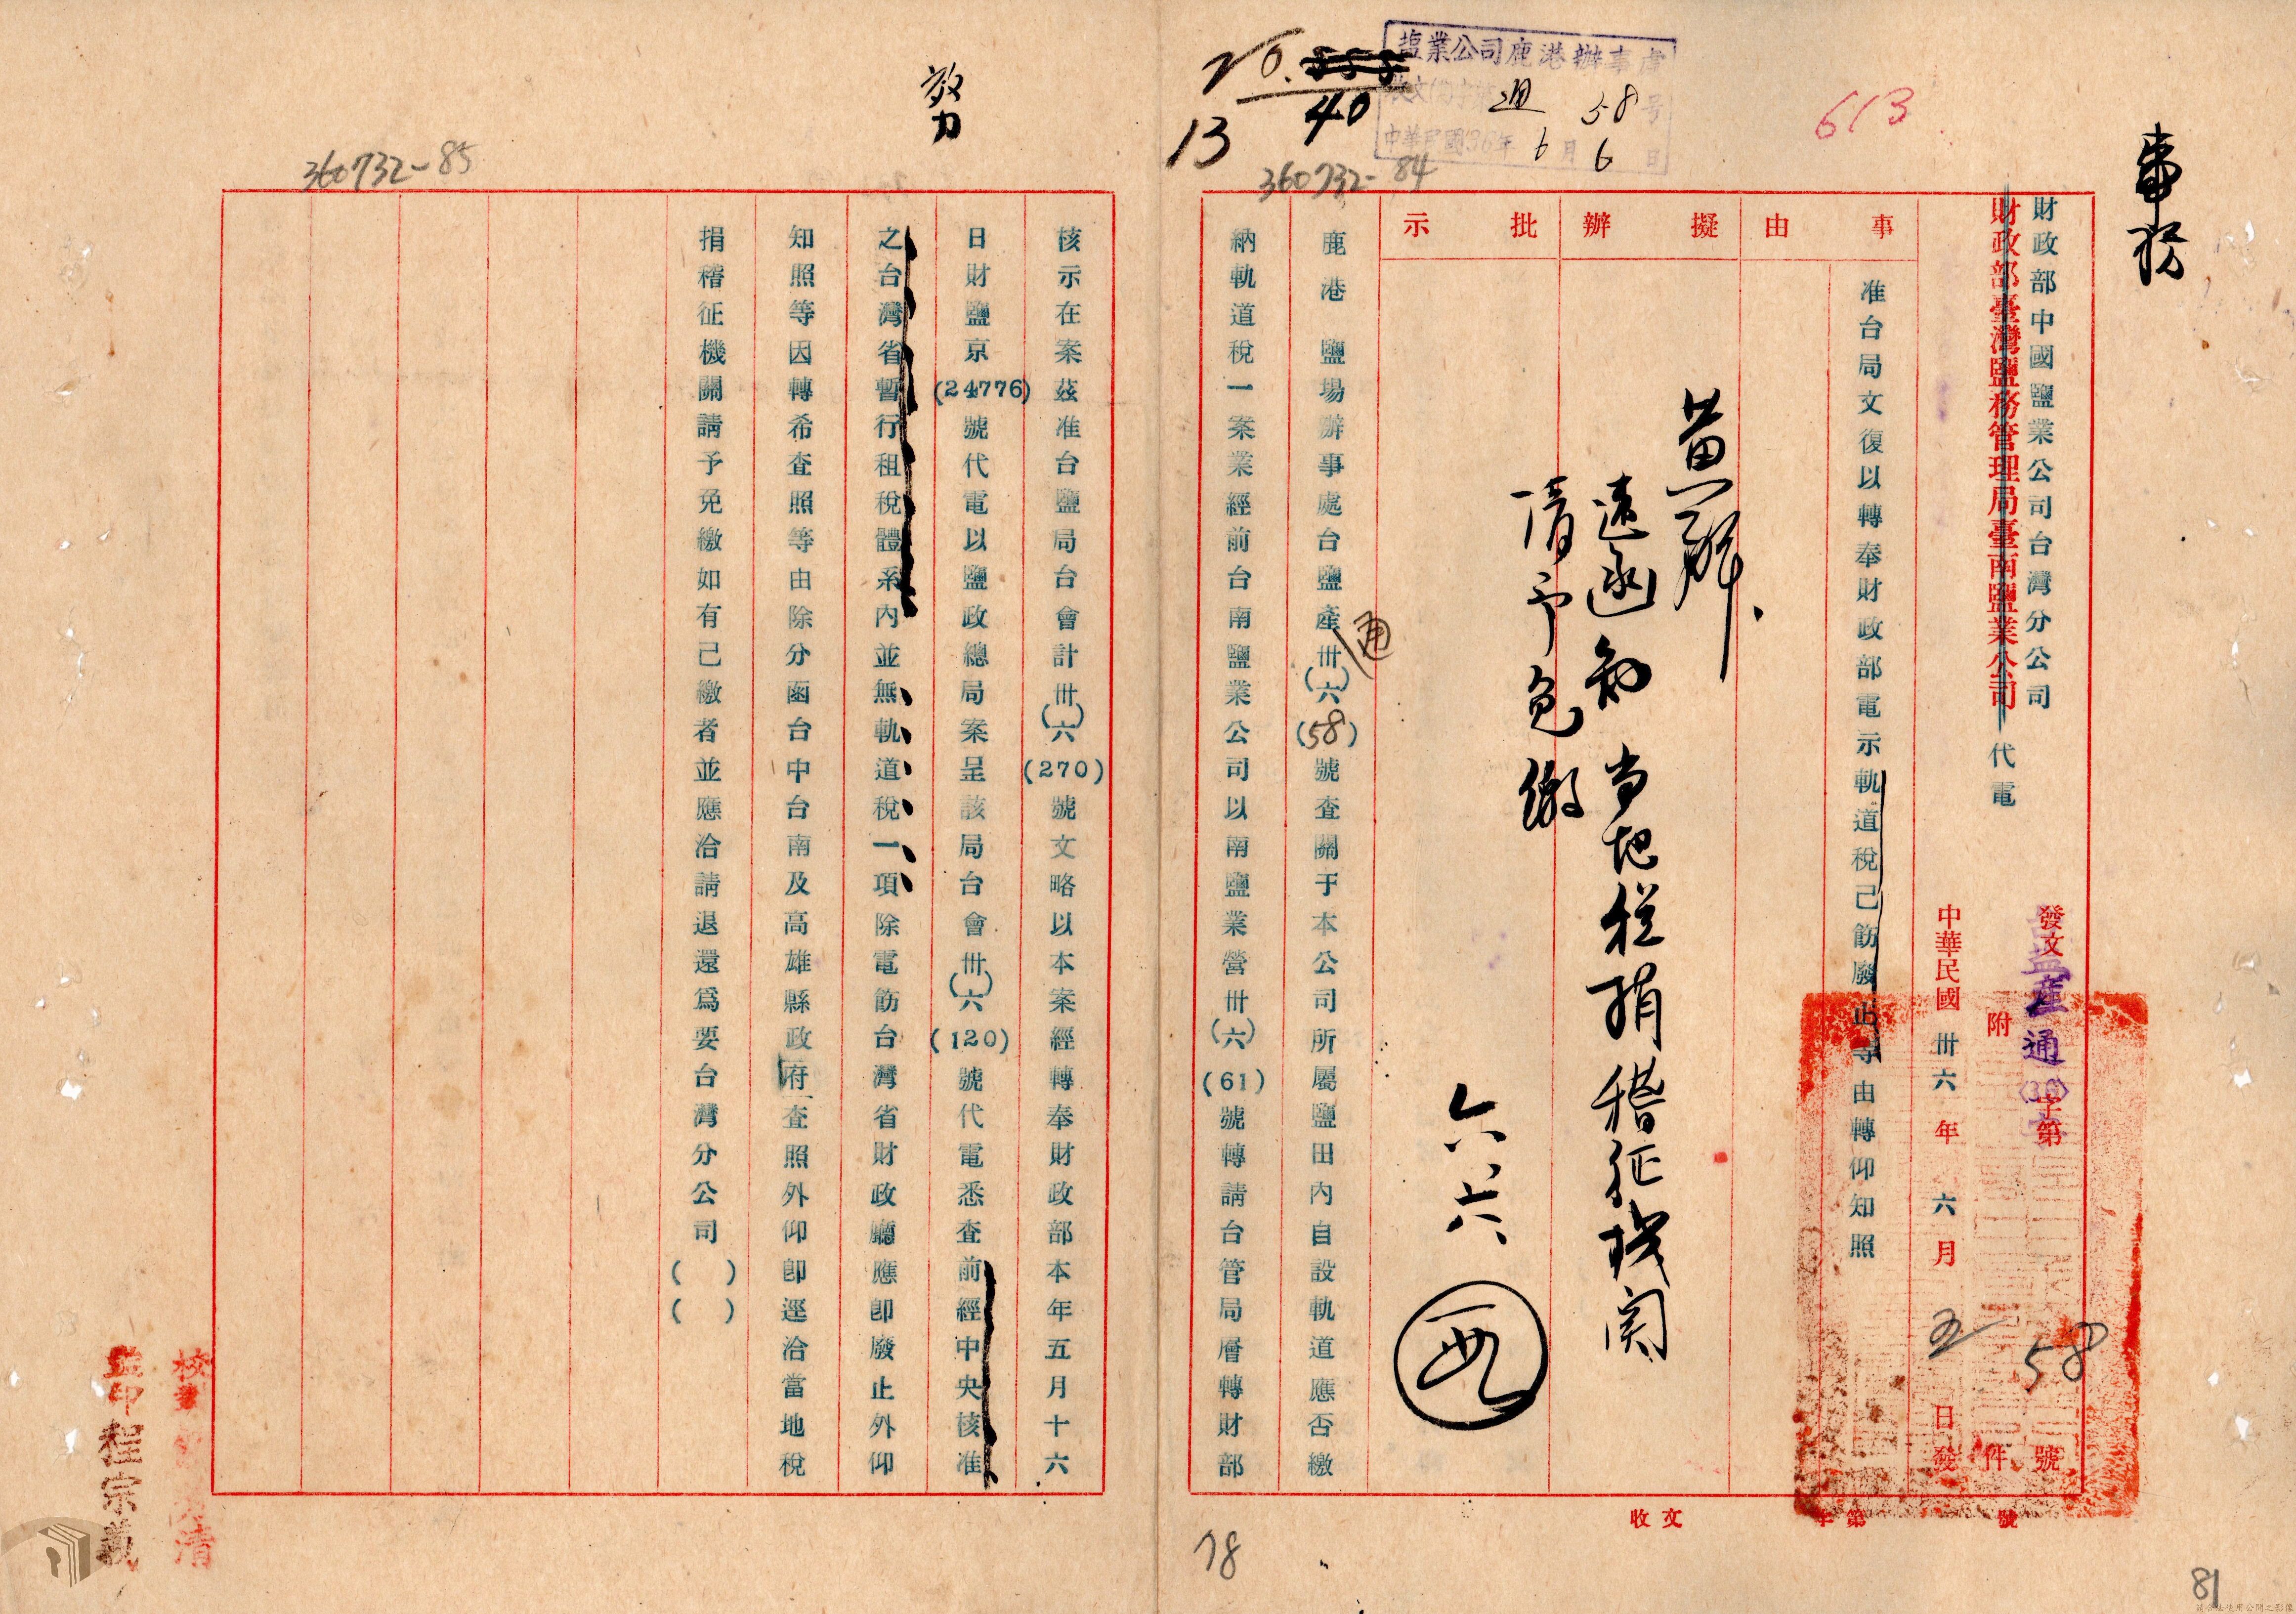 事務
財政部中國鹽業公司台灣分公司
財政部臺灣鹽務管理局臺南鹽業公司
代電
發文
鹽產通(36)字第58號
附件
中華民國卅六年六月五日發
613
事由
准台局文復以轉奉財政部電示軌道稅已飭廢止等由轉仰知照
擬辦
批示
速函知當地稅捐稽征機関
請予免繳
六六
塩業公司鹿港辦事處
收文
58号
中華民國36年6月6日
No. 555
40
13
360732-84
鹿港鹽場辦事處台鹽產卅(六)(58)號查關于本公司所屬鹽田內自設軌道應否繳
通
納軌道稅一案業經前台南鹽業公司以南鹽業營卅(六)(61)號轉請台管局層轉財部
收文
字第
號
78
81
360732-85
核示在案茲准台鹽局台會計卅(六)(270)號文略以本案經轉奉財政部本年五月十六
日財鹽京(24776)號代電以鹽政總局案呈該局台會卅(六)(120)號代電悉查前經中央核准
之台灣省暫行租稅體系內並無軌道稅一項除電飭台灣省財政廳應卽廢止外仰
知照等因轉希查照等由除分函台中台南及高雄縣政府查照外仰卽逕洽當地稅
捐稽征機關請予免繳如有已繳者並應洽請退還為要台灣分公司( )( )
校對
監印 程宗義
請合法使用公開之影像